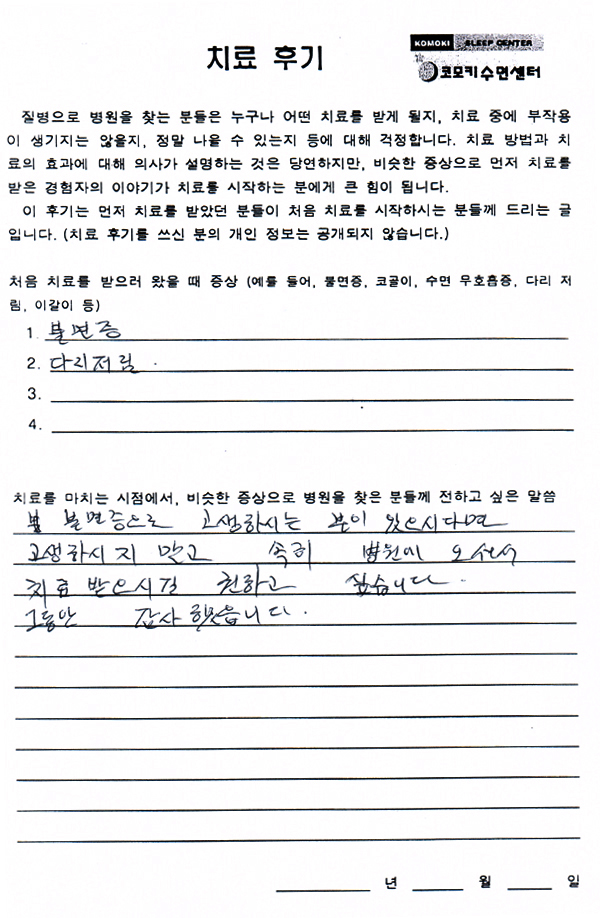 치료 후기
KOMOKI SLEEP CENTER
코모키수면센터
질병으로 병원을 찾는 분들은 누구나 어떤 치료를 받게 될지, 치료 중에 부작용
이 생기지는 않을지, 정말 나을 수 있는지 등에 대해 걱정합니다. 치료 방법과 치
료의 효과에 대해 의사가 설명하는 것은 당연하지만, 비슷한 증상으로 먼저 치료를
받은 경험자의 이야기가 치료를 시작하는 분에게 큰 힘이 됩니다.
이 후기는 먼저 치료를 받았던 분들이 처음 치료를 시작하시는 분들께 드리는 글
입니다. (치료 후기를 쓰신 분의 개인 정보는 공개되지 않습니다.)
처음 치료를 받으러 왔을 때 증상 (예를 들어, 불면증, 코골이, 수면 무호흡증, 다리 저
림, 이갈이 등)
1. 불면증
2. 다리저림.
3.
4.
치료를 마치는 시점에서, 비슷한 증상으로 병원을 찾은 분들께 전하고 싶은 말씀
불면증으로 고생하시는 분이 있으시다면
고생하시지 말고 속히 병원에 오셔서
치료 받으시길 권하고 싶습니다.
그동안 감사했습니다.
년 월 일